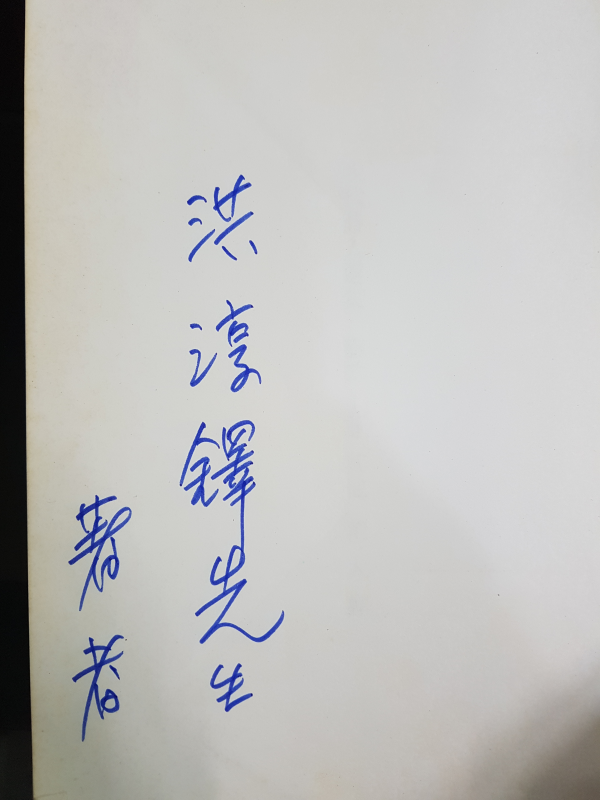 洪淳鐸先生
著者